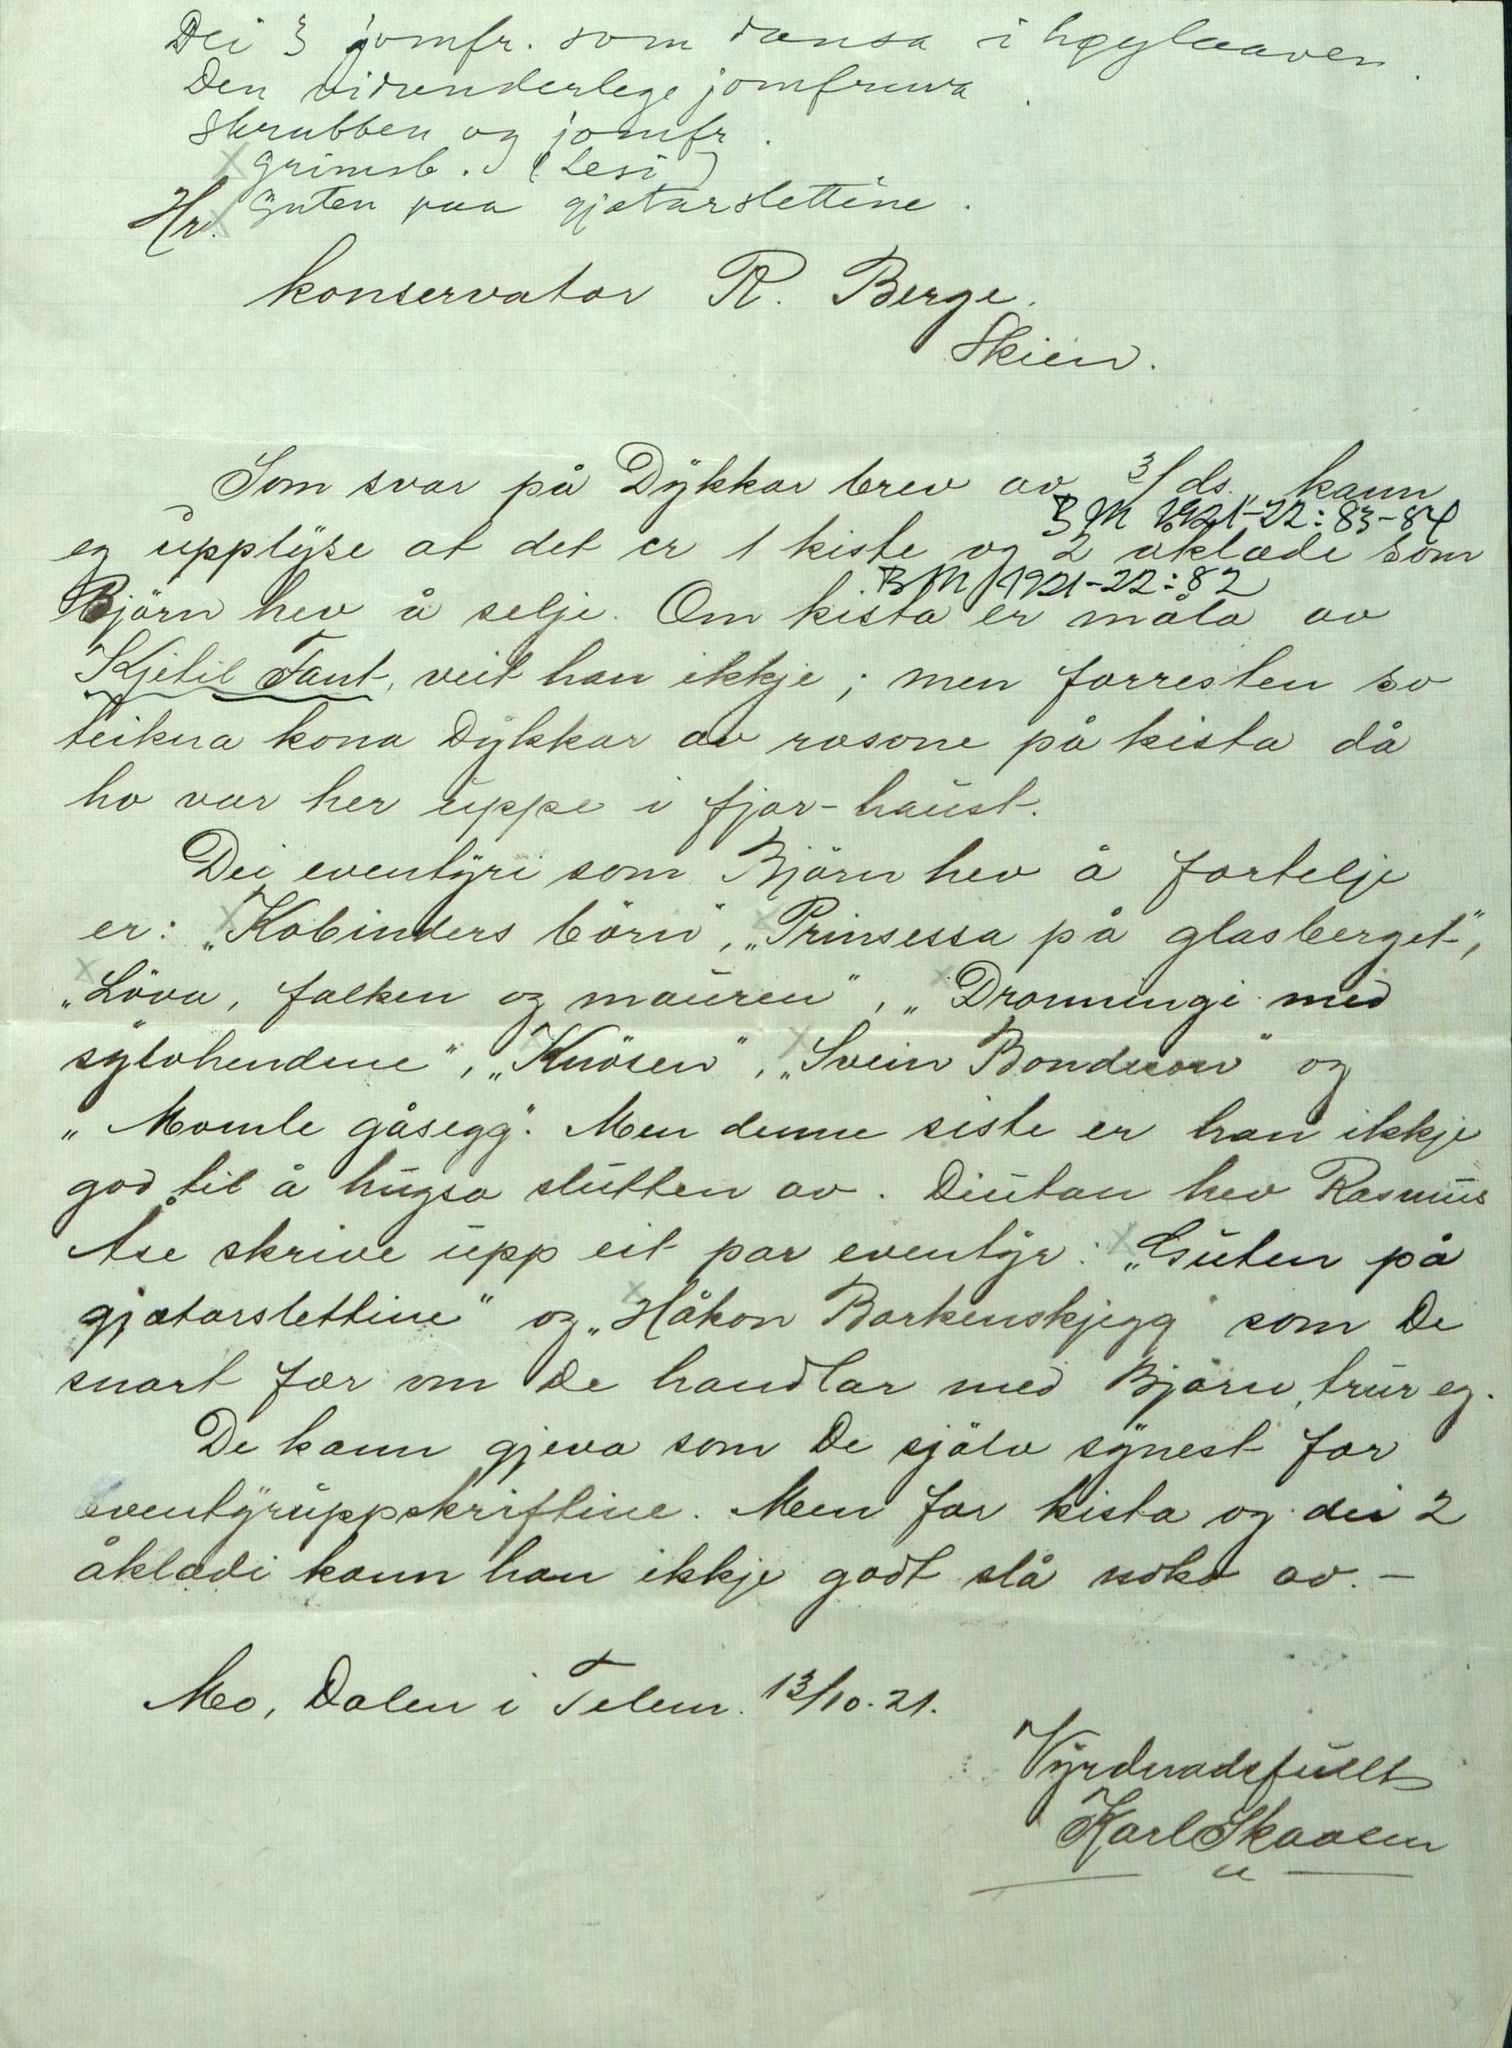 Dei 3 jomfr. som dansa i høylaaven.
Den vidunderlege jomfruva.
Skrubben og jomfr.
x Grimsb. (Lesi)
x Guten paa gjætarslettine.
Hr.
konservator R. Berge.
Skien.
Som svar på Dykkar brev av 3/ds. kann
BM 1921-22:83-84
eg upplyse at det er 1 kiste og 2 åklæde som
BM 1921-22:82
Björn hev å selje. Om kista er måla av
Kjetil Fant, veit han ikkje; men forresten so
teikna kona Dykkar av rosone på kista då
ho var her uppe i fjor-haust.
Dei eventyri som Björn hev å fortelje
er: x „Kobinders börn", x „Prinsessa på glasberget",
x „Löva, falken og mauren", x „Dronningi med
sylvhendene", x „Knösen", x „Svein Bondeson" og
„Momle gåsegg". Men denne siste er han ikkje
god til å hugsa slutten av. Diutan hev Rasmus
Åse skrive upp eit par eventyr: x „Guten på
gjætarslettine" og x „Håkon Borkenskjegg" som De
snart fær om De handlar med Björn, trur eg.
De kann gjeva som De sjölv synest for
eventyruppskriftine. Men for kista og dei 2
åklædi kann han ikkje godt slå noko av. –
Mo, Dalen i Telem. 13/10.21.
Vyrdnadsfullt
Karl Skaalen